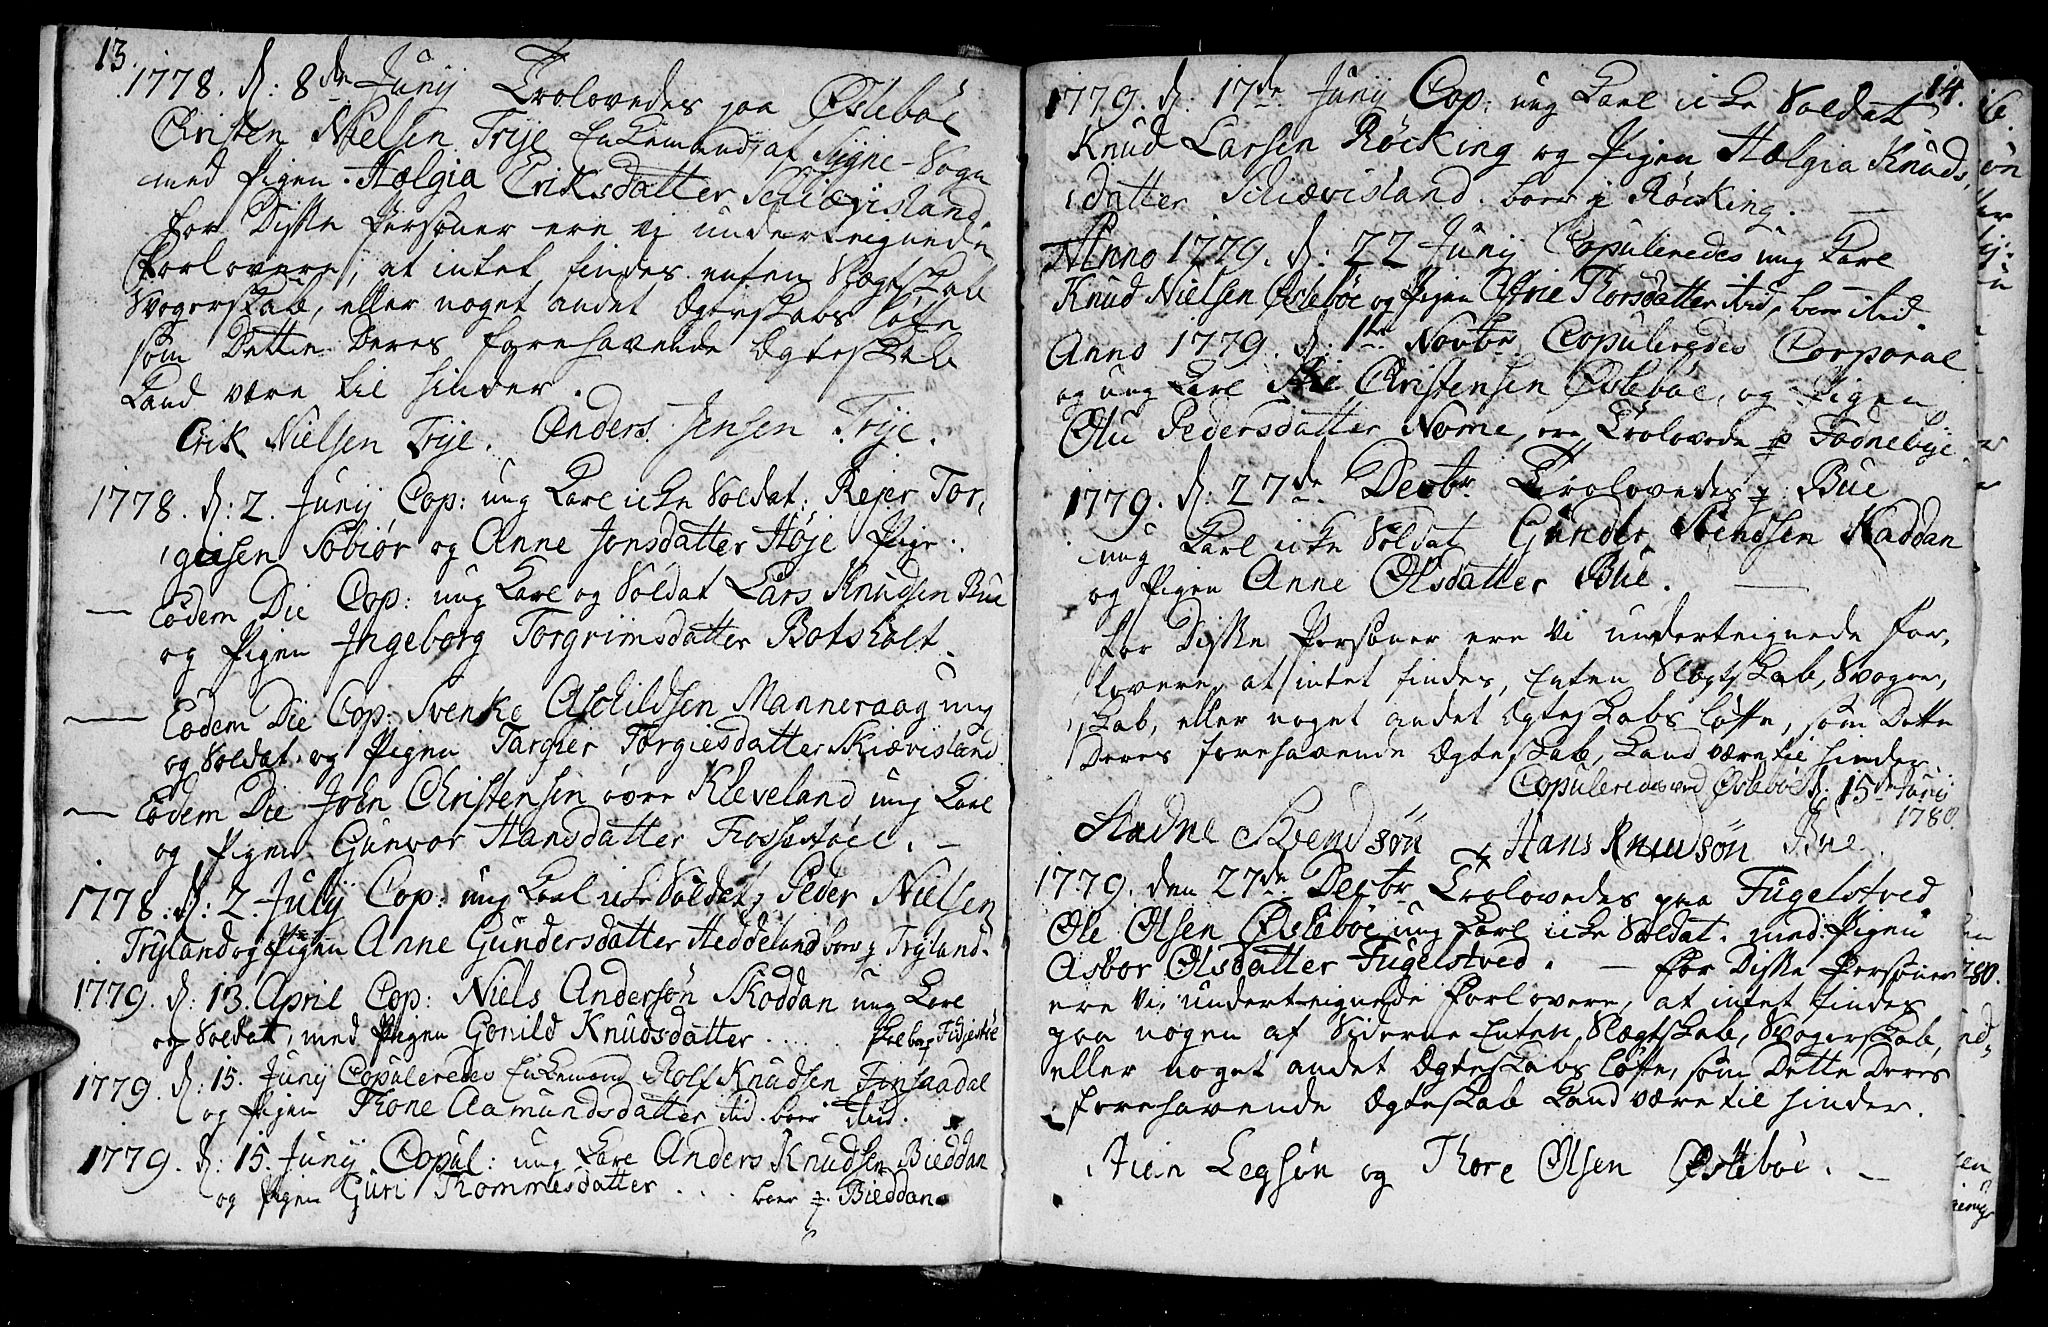 13.
1778. d: 8de Junij Trolovedes paa Øslebøe
Christen Nielsen Trije Enkemand, af Siigne-Sogn
med Pigen Hælgia Eriksdatter Schiævisland.
for Disse Personer ere Vi underteignede
Forlovere, at intet findes enten Slægtskab
Svogerskab, eller noget andet Ægteskabs løfte
som Dette Deres forehavende Ægteskab
kand være til hinder.
Erik Nielsen Trije. Anders Jensen Trije.
1778. d: 2. Junij Cop: ung Karl icke Soldat, Rejer Tor,
giesen Søbiør og Anne Jonsdatter Høje Pige.
— Eodem Die Cop: ung Karl og Soldat Lars Knudsen Bue
og Pigen Ingeborg Torgrimsdatter Botsholt.
— Eodem Die Cop: Svenke Aschildsen Manneraag ung
og Soldat og Pigen Targier Torgiesdatter Skiævisland
— Eodem Die John Christensen øvre Kleveland ung Karl
og Pigen Gunvor Hansdatter Fossestøel. —
1778. d: 2. Julij Cop: ung Karl icke Soldat, Peder Nielsen
Tryland og Pigen Anne Gundersdatter Heddeland boer p Tryland.
1779. d: 13. April Cop: Niels Andersøn Skoddan ung Karl
og Soldat, med Pigen Gonild Knudsdatter . . . . . Fidjestøe
1779. d: 15. Junij Copuleredes Enkemand Rolf Knudsen Finsaadal
og Pigen Thone Aamundsdatter ibid. boer ibid.
1779. d: 15. Junij Copul: ung Karl Anders Knudsen Bieddan
og Pigen Guri Thommesdatter . . . . boer p Bieddan
14.
1779. d. 17de Junij Cop: ung Karl icke Soldat
Knud Larsen Røcking og Pigen Hælgia Knuds,
datter Schiævisland. boer p Røcking. —
Anno 1779. d: 22 Junij Copuleredes ung Karl
Knud Nielsen Øslebøe og Pigen Thorsdatter ibid, boer ibid.
Anno 1779. d. 1te Novbr Copuleredes Corporal
og ung Karl Christensen Øslebøe, og Pigen
Olu Pedersdatter Nome, ere Trolovede p
1779. d: 27de Decbr Trolovedes p Bue
ung Karl icke Soldat Gunder Svendsen Kaddan
og Pigen Anne Olsdatter Bue. —
for Disse Personer ere Vi underteignede for,
lovere, at intet findes, Enten Slægtskab, Svoger,
skab, eller noget andet Ægteskabs løfte, som Dette
Deres forehavende Ægteskab, kand være til hinder.
Copuleredes ved Øslebøe d. 15de Junij
1780.
Svendsøn Hans Knudsøn Bue.
1779. den 27de Decbr Trolovedes paa Fugelstved
Ole Olsen Øslebøe ung Karl icke Soldat. med Pigen
Asbor Olsdatter Fugelstved. — for Disse Personer
ere Vi, underteignede Forlovere, at intet findes
paa nogen af Siderne Enten Slægtskab, Svogerskab,
eller noget andet Ægteskabs løfte, som Dette Deres
forehavende Ægteskab kand være til hinder.
Legsøn og Thore Olsen Øslebøe. —